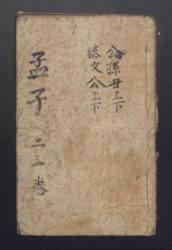 孟子 二三 卷
公孫丑上下
滕文公上下